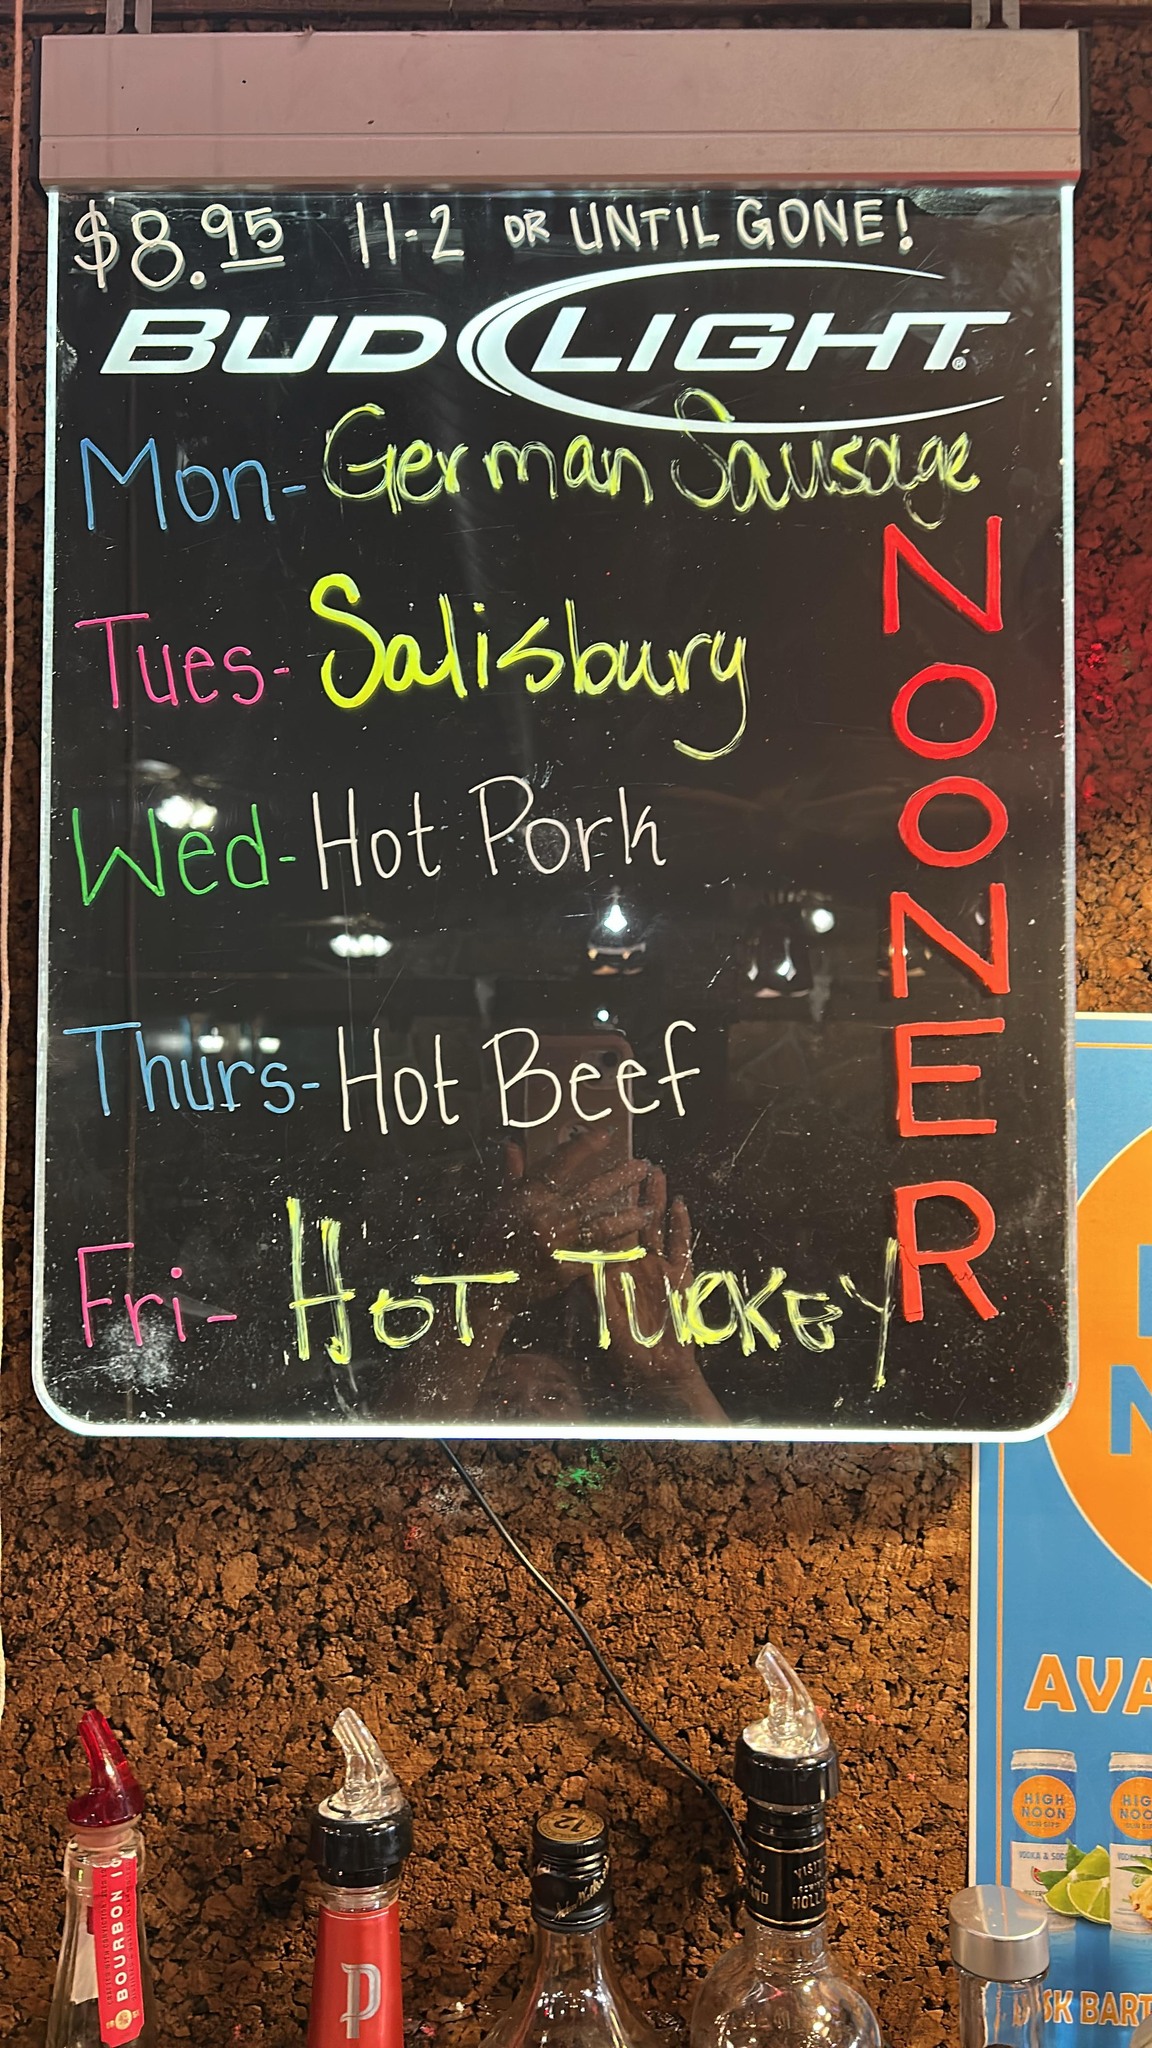 $8.95 11-2 OR UNTIL GONE!
BUD LIGHT
Mon- German Sausage
Tues- Salisbury
Wed- Hot Pork
Thurs- Hot Beef
Fri- HOT TURKEY
NOONER
AVA
HIGH NOON
VODKA & SODA
HIG
NOO
SK BART
BOURBON
P
12
VISIT
HOLL